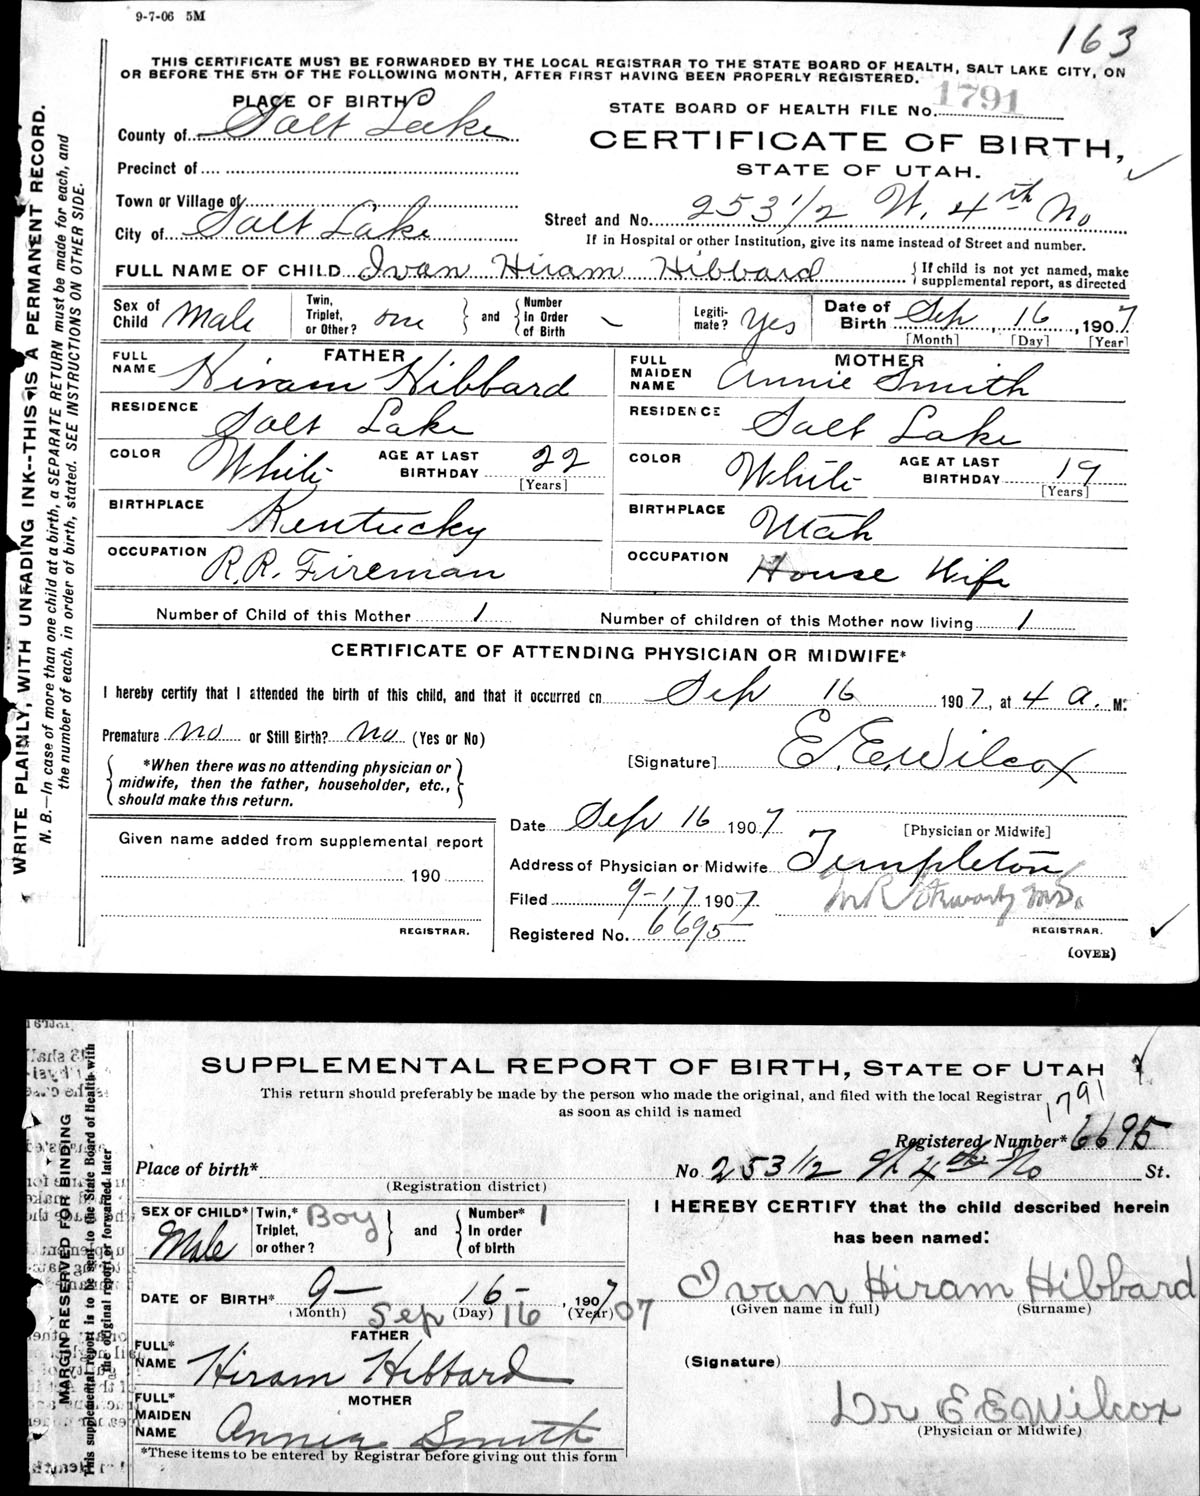 9-7-06 5M
163
THIS CERTIFICATE MUST BE FORWARDED BY THE LOCAL REGISTRAR TO THE STATE BOARD OF HEALTH, SALT LAKE CITY, ON
OR BEFORE THE 5TH OF THE FOLLOWING MONTH, AFTER FIRST HAVING BEEN PROPERLY REGISTERED.
WRITE PLAINLY, WITH UNFADING INK--THIS IS A PERMANENT RECORD.
N. B.—In case of more than one child at a birth, a SEPARATE RETURN must be made for each, and
the number of each, in order of birth, stated. SEE INSTRUCTIONS ON OTHER SIDE.
PLACE OF BIRTH
STATE BOARD OF HEALTH FILE No. 1791
County of Salt Lake
CERTIFICATE OF BIRTH,
Precinct of
STATE OF UTAH.
Town or Village of
City of Salt Lake
Street and No. 253 1/2 W. 4th No
If in Hospital or other Institution, give its name instead of Street and number.
FULL NAME OF CHILD Ivan Hiram Hibbard
If child is not yet named, make
supplemental report, as directed
Sex of Child Male
Twin, Triplet, or Other? one
and
Number In Order of Birth –
Legiti-mate? Yes
Date of Birth Sep, 16, 1907
[Month] [Day] [Year]
FATHER
FULL NAME Hiram Hibbard
RESIDENCE Salt Lake
COLOR White
AGE AT LAST BIRTHDAY 22
[Years]
BIRTHPLACE Kentucky
OCCUPATION R.R. Fireman
MOTHER
FULL MAIDEN NAME Annie Smith
RESIDENCE Salt Lake
COLOR White
AGE AT LAST BIRTHDAY 19
[Years]
BIRTHPLACE Utah
OCCUPATION House Wife
Number of Child of this Mother 1
Number of children of this Mother now living 1
CERTIFICATE OF ATTENDING PHYSICIAN OR MIDWIFE*
I hereby certify that I attended the birth of this child, and that it occurred on Sep 16 1907, at 4 a. M.
Premature no or Still Birth? no (Yes or No)
[Signature] E. E. Wilcox
*When there was no attending physician or
midwife, then the father, householder, etc.,
should make this return.
Date Sep 16 1907
[Physician or Midwife]
Given name added from supplemental report
190
REGISTRAR.
Address of Physician or Midwife Templeton
Filed 9-17 1907
Registered No. 6695
REGISTRAR.
(OVER)
SUPPLEMENTAL REPORT OF BIRTH, STATE OF UTAH
This return should preferably be made by the person who made the original, and filed with the local Registrar
as soon as child is named
1791
MARGIN RESERVED FOR BINDING
This supplemental report is to be sent to the State Board of Health with
the original report or forwarded later
Registered Number* 6695
Place of birth*
(Registration district)
No. 253 1/2 W 4th No St.
SEX OF CHILD* Male
Twin,* Triplet, or other? Boy
and
Number* In order of birth 1
I HEREBY CERTIFY that the child described herein
has been named:
DATE OF BIRTH* 9- 16-, 1907
(Month) (Day) (Year)
Sep 16 07
Ivan Hiram Hibbard
(Given name in full) (Surname)
FATHER
FULL* NAME Hiram Hibbard
(Signature)
MOTHER
FULL* MAIDEN NAME Annie Smith
Dr E E Wilcox
(Physician or Midwife)
*These items to be entered by Registrar before giving out this form